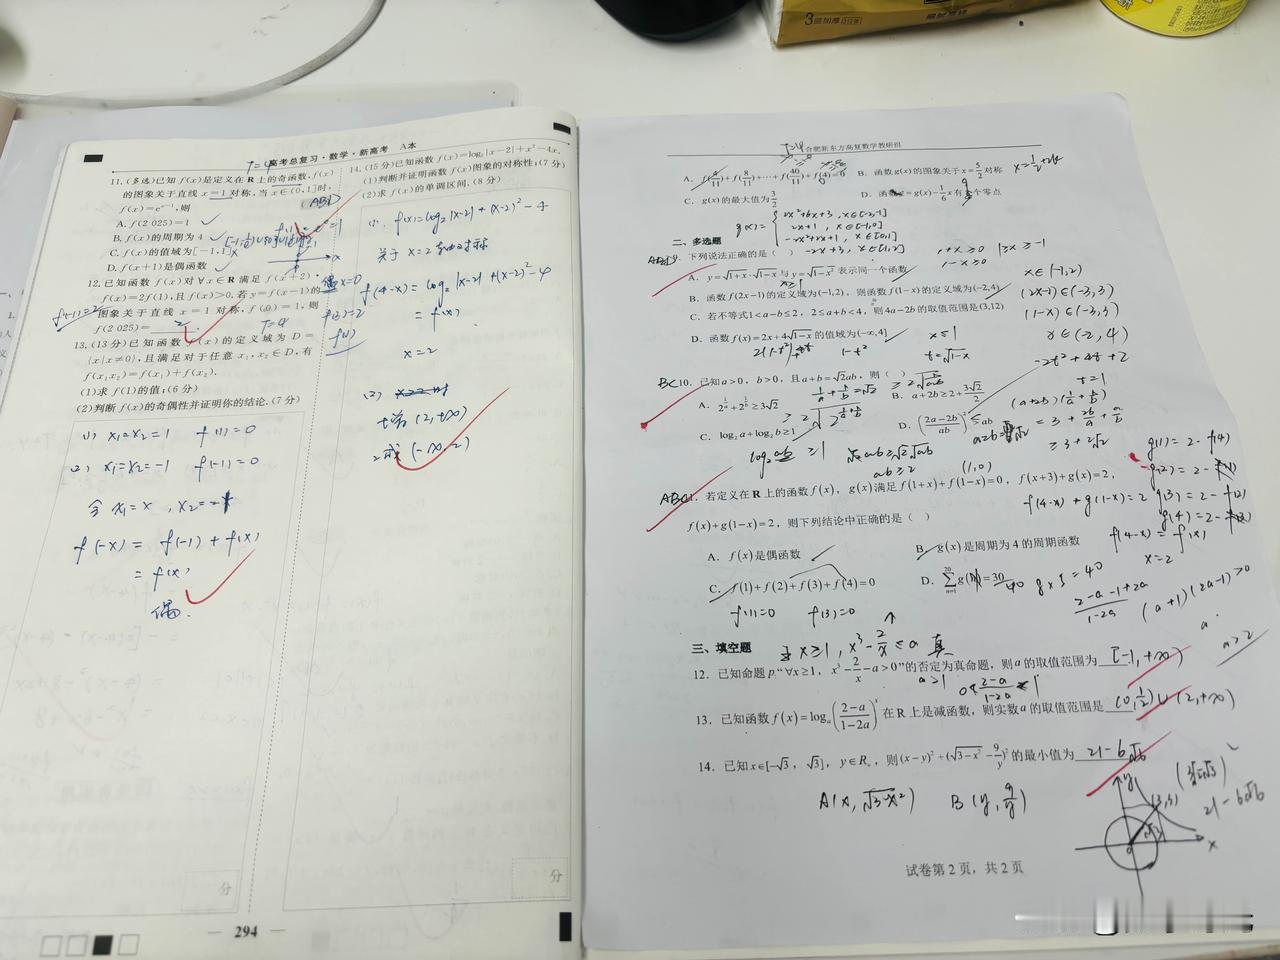 3层加厚
高考总复习·数学·新高考 A本
T=4
11.(多选)已知f(x)是定义在R上的奇函数,f(x)
的图象关于直线x=1对称,当x∈(0,1]时,
f(x)=eˣ⁻¹,则
(ABD)
A.f(2 025)=1
B.f(x)的周期为4
C.f(x)的值域为[-1,1]
D.f(x+1)是偶函数
12.已知函数f(x)对∀x∈R满足f(x+2)·
f(x)=2f(1),且f(x)>0.若y=f(x-1)的
图象关于直线x=1对称,f(0)=1,则
f(2 025)=2.
偶 x=0
T=4
13.(13分)已知函数f(x)的定义域为D=
{x|x≠0},且满足对于任意x₁,x₂∈D,有
f(x₁x₂)=f(x₁)+f(x₂).
(1)求f(1)的值;(6分)
(2)判断f(x)的奇偶性并证明你的结论.(7分)
(1) x₁=x₂=1 f(1)=0
(2) x₁=x₂=-1 f(-1)=0
令x₁=x,x₂=-1
f(-x)=f(-1)+f(x)
=f(x)
偶.
14.(15分)已知函数f(x)=log₂|x-2|+x²-4x.
(1)判断并证明函数f(x)图象的对称性;(7分)
(2)求f(x)的单调区间.(8分)
(1) f(x)=log₂|x-2|+(x-2)²-4
关于x=2
f(4-x)=log₂|x-2|+(x-2)²-4
=f(x)
x=2
(2)
增(2,+∞)
减(-∞,2)
分
分
294
合肥新东方高复数学教研组
A. f(4/11)+f(8/11)+···+f(40/11)+f(4)=0 B. 函数g(x)的图象关于x=5/2对称
C. g(x)的最大值为3/2 D. 函数y=g(x)-1/6x有个零点
g(x)=
2x+1, x∈[-1,0]
二、多选题
9. 下列说法正确的是( )
1+x≥0
1-x≥0
x≥-1
A. y=√(1+x)·√(1-x)与y=√(1-x²)表示同一个函数
x∈(-1,2)
B. 函数f(2x-1)的定义域为(-1,2),则函数f(1-x)的定义域为(-2,4)
(2x-1)∈(-3,3)
C. 若不等式1<a-b≤2,2≤a+b<4,则4a-2b的取值范围是(3,12)
(1-x)∈(-3,3)
D. 函数f(x)=2x+4√(1-x)的值域为(-∞,4]
x∈(-2,4)
x≤1
t=√(1-x)
1-t²
-2t²+4t+2
t=1
BC 10. 已知a>0,b>0,且a+b=√2ab,则( )
1/a+1/b=√2
A. 2^(1/a)+2^(1/b)≥3√2 B. a+2b≥2+3√2/2
(a+2b)(1/a+1/b)
C. log₂a+log₂b≥1 D. ((2a-2b)/ab)²≤ab
=3+2b/a+a/b
≥3+2√2
log₂ab≥1
√2ab≥2√ab
ab≥2
(1,0)
11. 若定义在R上的函数f(x),g(x)满足f(1+x)+f(1-x)=0,f(x+3)+g(x)=2,
f(x)+g(1-x)=2,则下列结论中正确的是( )
f(4-x)+g(1-x)=2
f(4-x)=f(x)
x=2
g(1)=2-f(4)
A. f(x)是偶函数 B. g(x)是周期为4的周期函数
C. f(1)+f(2)+f(3)+f(4)=0 D. Σg(n)=30
f(1)=0 f(3)=0
(a+1)(2a-1)>0
三、填空题
x≥1,x³-2/x≤a 真
12. 已知命题p“∀x≥1,x³-2/x-a>0”的否定为真命题,则a的取值范围为[-1,+∞)
a>1
13. 已知函数f(x)=logₐ((2-a)/(1-2a))ˣ在R上是减函数,则实数a的取值范围是(0,1/2)∪(2,+∞)
a>2
14. 已知x∈[-√3,√3],y∈R₊,则(x-y)²+(√(3-x²)-9/y)²的最小值为21-6√6
A(x,√(3-x²)) B(y,9/y)
(3,3)
21-6√6
试卷第2页,共2页